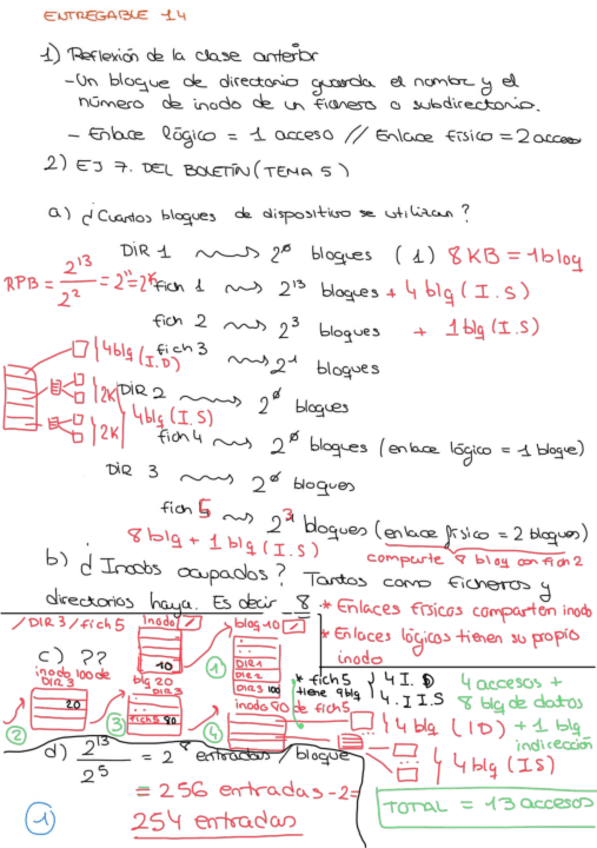 ENTREGABLE 14
1) Reflexión de la clase anterior
- Un bloque de directorio guarda el nombre y el
número de inodo de un fichero o subdirectorio.
- Enlace lógico = 1 acceso // Enlace físico = 2 accesos
2) EJ 7. DEL BOLETÍN (TEMA 5)
a) ¿Cuantos bloques de dispositivo se utilizan?
DIR 1 → 2^0 bloques (1) 8 KB = 1 bloq
RPB = 2^13 / 2^2 = 2^11 = 2^K
fich 1 → 2^13 bloques + 4 blq (I.S)
fich 2 → 2^3 bloques + 1 blq (I.S)
fich 3 → 2^1 bloques
4 blq (I.D)
2K
DIR 2 → 2^0 bloques
4 blq (I.S)
2K
fich 4 → 2^0 bloques (enlace lógico = 1 bloque)
DIR 3 → 2^0 bloques
fich 5 → 2^3 bloques (enlace físico = 2 bloques)
8 blq + 1 blq (I.S)
comparte 8 bloq con fich 2
b) ¿Inodos ocupados? Tantos como ficheros y
directorios haya. Es decir 8
* Enlaces físicos comparten inodo
* Enlaces lógicos tienen su propio
inodo
/DIR 3/fich 5
c) ??
inodo /
10
1
bloq 10 /
DIR 1
DIR 2
DIR 3 100
inodo 100 de
DIR 3
20
2
blq 20
DIR 3
fich 5 80
3
inodo 80 de fich 5
4
* fich 5
tiene 9 blq
4 I.D
4. I.S
4 blq (ID) + 1 blq
indirección
4 blq (IS)
4 accesos +
8 blq de datos
TOTAL = 13 accesos
d) 2^13 / 2^5 = 2^8 entradas / bloque
= 256 entradas - 2 =
254 entradas
1